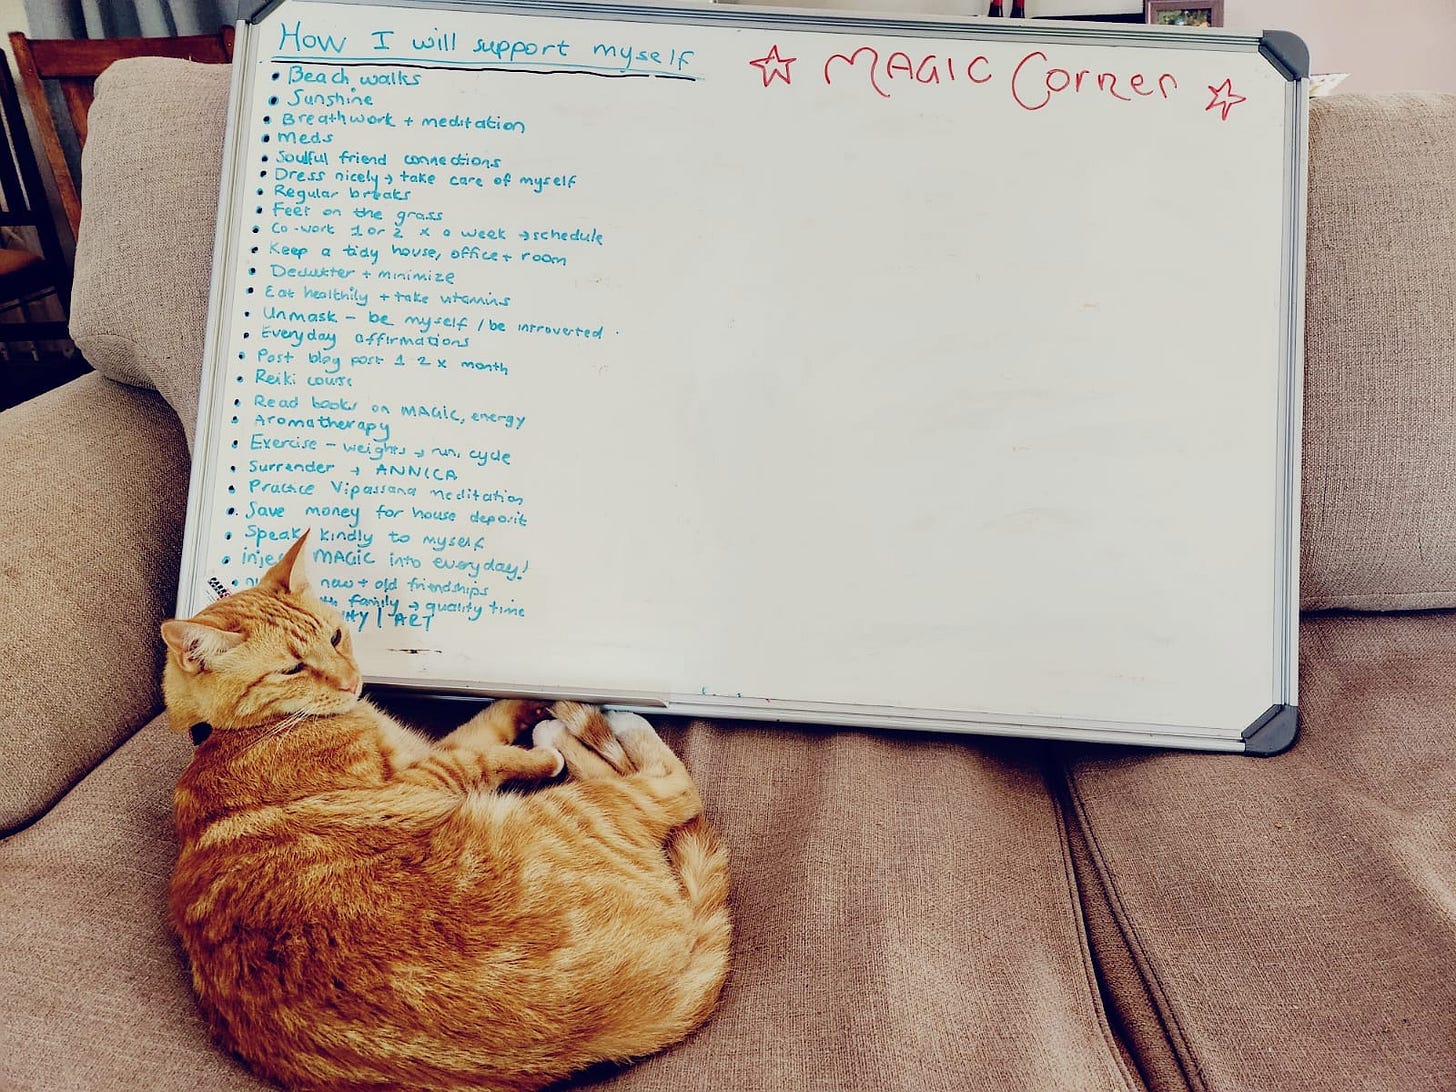 How I will support myself
• Beach walks
• Sunshine
• Breathwork + meditation
• Meds
• Soulful friend connections
• Dress nicely → take care of myself
• Regular breaks
• Feet on the grass
• Co-work 1 or 2 x a week → schedule
• Keep a tidy house, office + room
• Declutter + minimize
• Eat healthily + take vitamins
• Unmask - be myself / be introverted
• Everyday affirmations
• Post blog post 1 2 x month
• Reiki course
• Read books on MAGIC, energy
• Aromatherapy
• Exercise - weights → run, cycle
• Surrender → ANNICA
• Practice Vipassana meditation
• Save money for house deposit
• Speak kindly to myself
• MAGIC into everyday!
• new + old friendships
family → quality time
| ART
☆ MAGIC Corner ☆